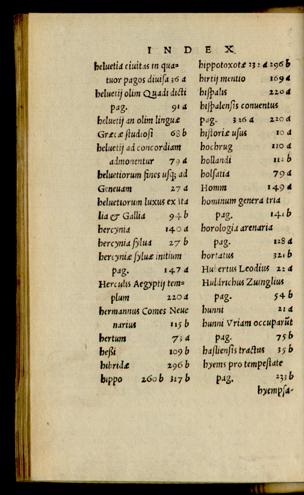 INDEX
heluetia ciuitas in qua-
tuor pagos diuisa 36 a
heluetij olim Quadi dicti
pag. 91 a
heluetij an olim linguæ
Græcæ studiosi 68 b
helueti ad concordiam
admonentur 79 a
heluetiorum fines usq; ad
Geneuam 27 a
heluetiorum luxus ex Ita
lia & Gallia 94 b
hercynia 140 a
hercynia sylua 27 b
hercyniæ syluæ initium
pag. 147 a
Herculis Aegyptij tem-
plum 220 a
hermannus Comes Neue
narius 115 b
hertum 73 a
heßi 109 b
hibridæ 296 b
hippo 260 b 317 b
hippotoxotæ 132 a 296 b
hirtij mentio 169 a
hispalis 220 a
hispalensis conuentus
pag. 316 a 220 a
historiæ usus 10 a
hochrug 110 a
hollandi 112 b
holsatia 79 a
Homm 149 a
hominum genera tria
pag. 141 b
horologia arenaria
pag. 128 a
hortatus 321 b
Hubertus Leodius 22 a
Huldrichus Zuinglius
pag. 54 b
hunni 21 a
hunni Vriam occuparūt
pag. 75 b
hasliensis tractus 35 b
hyems pro tempestate
pag. 231 b
hyempsa-